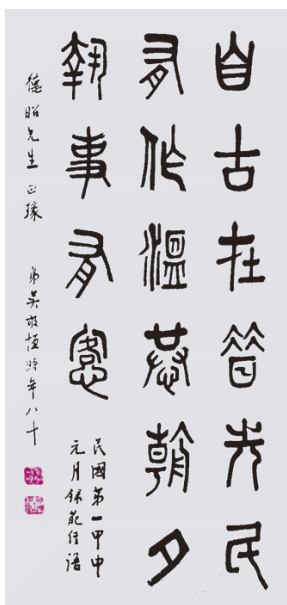 自古在昔先民
有作溫恭朝夕
執事有愙
民國第一甲申
元月錄語
德昭先生正瑑
弟吳敬恒時年八十